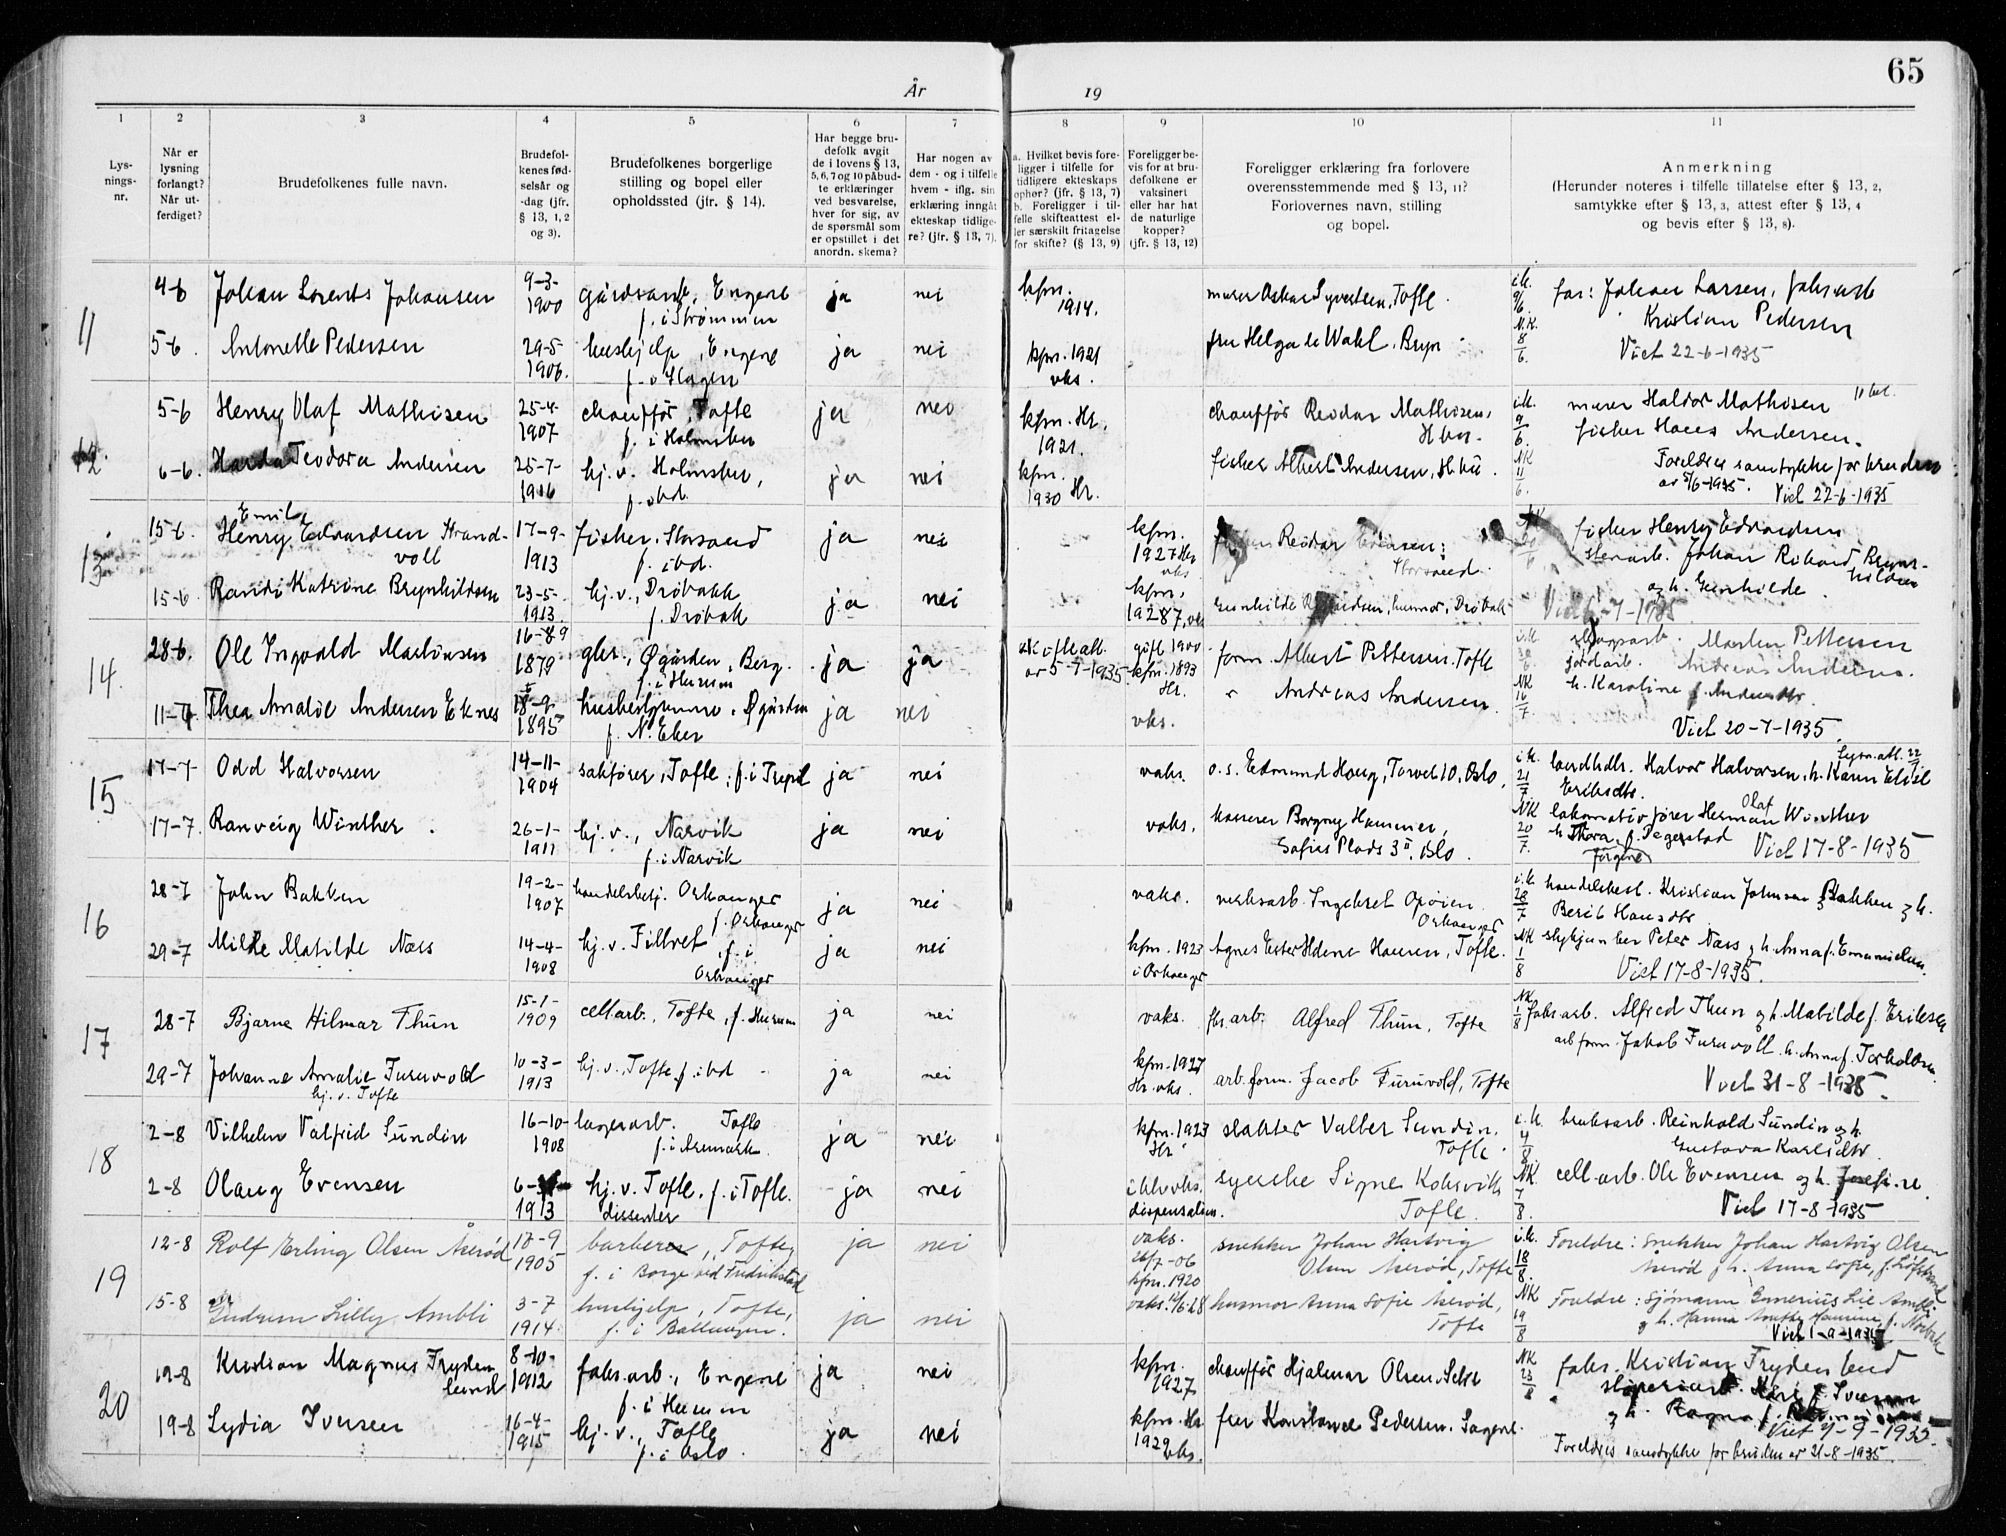 65
År 19
1 2 3 4 5 6 7 8 9 10 11
Lys-
nings-
nr.
Når er
lysning
forlangt?
Når ut-
ferdiget?
Brudefolkenes fulle navn.
Brudefol-
kenes fød-
selsår og
-dag (jfr.
§ 13, 1, 2
og 3).
Brudefolkenes borgerlige
stilling og bopel eller
opholdssted (jfr. § 14).
Har begge bru-
defolk avgit
de i lovens § 13,
5, 6, 7 og 10 påbud-
te erklæringer
ved besvarelse,
hver for sig, av
de spørsmål som
er opstillet i det
anordn. skema?
Har nogen av
dem - og i tilfelle
hvem - iflg. sin
erklæring inngåt
ekteskap tidlige-
re? (jfr. § 13, 7).
a. Hvilket bevis fore-
ligger i tilfelle for
tidligere ekteskaps
ophør? (jfr. § 13, 7)
b. Foreligger i til-
felle skifteattest el-
ler særskilt fritagelse
for skifte? (§ 13, 9)
Foreligger be-
vis for at bru-
defolkene er
vaksinert
eller har hat
de naturlige
kopper?
(jfr. § 13, 12)
Foreligger erklæring fra forlovere
overensstemmende med § 13, 11?
Forlovernes navn, stilling
og bopel.
Anmerkning
(Herunder noteres i tilfelle tillatelse efter § 13, 2,
samtykke efter § 13, 3, attest efter § 13, 4
og bevis efter § 13, 8).
11
4-6 Johan Lorents Johansen 9-3-1900 gårdsarb, Engene f. i Strømmen ja nei kfm. 1914. murer Oskar Syvertsen, Tofte. i.k. 9/6. far: Johan Larsen, fabrarb
Kristian Pedersen
5-6. Antonette Pedersen 29-5-1906. hushjelp, Engene f. i Hagen ja nei kfm. 1921 vks. fru Helga le Wahl, Bryn N.K. 8/6. Viet 22-6-1935
12.
5-6 Henry Olaf Mathisen 25-4-1907 chauffør, Tofte f. i Holmsbu ja nei kfm. Hr. 1921. chauffør Reidar Mathisen, H.bu. i.k. 9/6. murer Haldor Mathisen
fisker Hans Andersen.
6-6. Teodora Andersen 25-7-1916 hj. v. Holmsbu, f. ibd. ja nei kfm. 1930 Hr. fisker Albert Andersen, H.bu. NK 11/6. Foreldres samtykke for bruden
av 5/6-1935. Viet 22-6-1935
13
15-6. Henry Emil Edvardsen Strand-
voll 17-9-1913 fisker, Storsand f. ibd. ja nei kfm. 1927 Hr vks Reidar Storsand. NK fisker Henry Edvardsen
stenarb. Johan Rikard Bryn-
hildsen
og h. Gunhilde.
15-6 Randi Katrine Brynhildsen 23-5-1913. hj. v., Drøbakk f. Drøbak ja nei kfm. 19287, vks Gunhilde husmor, Drøbak Viet -7-1935
14.
28-6. Ole Ingvald Martinsen 16-89 1879 gbr., Øgården, Berg. f. i Hurum ja ja skifteatt. av 5-7-1935 gift 1900 kfm. 1893 Hr. form. Albert Pettersen, Tofte Marten Pettersen
jordarb. Andreas Andersen.
11-7 Thea Amalie Andersen Eknes 18-9-1895 husbestyrerinne, Øgården f. N. Eker ja nei vks. " Andreas Andersen. NK 16/7. h. Karoline f. Andersdtr.
Viet 20-7-1935.
15
17-7 Odd Halvorsen 14-11-1904 sakfører, Tofte, f. i Trysil ja nei vaks. o.s. Edmund Houg, Torvet 10, Oslo, i.k. 21/7 landhdlr. Halvor Halvorsen, h. Karen Elise
Eriksdtr.
17-7. Ranveig Winther. 26-1-1911 hj. v., Narvik f. i Narvik ja nei vaks. kasserer Borgny Hammer,
Sofies Plads 3 II, Oslo. NK 20/7. lokomotivfører Herman Olaf Winther
h. Thora f. Pegerstad Viet 17-8-1935
16
28-7 John Bakken 19-2-1907 handelsbetj. Orkanger f. Orkanger ja nei vaks. verksarb. Ingebret Opøien Orkanger i.k. 28/7 handelsbest. Kristian Johnsen Bakken og h.
Berit Hansdtr
29-7 Milde Matilde Næss 14-4-1908 hj. v. Filtvet, f. i Orkanger ja nei kfm. 1923 i Orkanger Agnes Ester Helene Hansen, Tofte. NK 1/8 Peter Næss og h. Anna f. Emanuelsen.
Viet 17-8-1935.
17
28-7 Bjarne Hilmar Thun 15-1-1909 cell.arb., Tofte, f. Hurum ja nei vaks. fbr.arb. Alfred Thun, Tofte NK 1/8 fabr.arb. Alfred Thun og h. Matilde f. Eriksen
29-7 Johanne Amalie Furuvold
hj. v. Tofte 10-3-1913 hj. v., Tofte f. ibd ja nei kfm. 1927 Hr. vks. arb.form. Jacob Furuvold, Tofte arb form. Jakob Furuvoll, h. Anna f. Torholm.
Viet 31-8-1935.
18
2-8 Vilhelm Valfrid Sundin 16-10-1908 lagerarb. Tofte f. i Aremark. ja nei kfm. 1923 Hr slakter Valter Sundin, Tofte. i.k. 4/8. bruksarb. Reinhold Sundin og h.
Gustava Karlsdtr
2-8 Olaug Evensen 6- 1913 hj. v. Tofte, f. i Tofte. dissenter ja nei dispensation. syerske Signe Kolsvik Tofte. NK. 7/8. cell.arb. Ole Evensen og h. Josefine.
Viet 17-8-1935
19
12-8 Rolf Erling Olsen Åserød 17-9 1905 barberer, Tofte, f. i Borge ved Fredrikstad ja nei vaks. 26/7-06 kfm. 1920 snekker Johan Hartvig
Olsen Åserød, Tofte i.k. 18/8. Foreldre: snekker Johan Hartvig Olsen
Åserød og h. Anna Sofie,
15-8 Gudrun Lilly Ambli 3-7 1914 hushjelp, Tofte, f. i Ballangen. ja nei vaks. 12/6-28 husmor Anna Sofie Åserød, Tofte NK 19/8 Foreldre: Sjømann Lie Ambli
og h. Hanna
Viet 1-9-1935
20
19-8 Kristian Magnus Fryden
lund 8-10-1912 fabr.arb., Engene f. i Hurum ja nei kfm. 1927 chauffør Hjalmar Olsen, Sætre NK 23/8 fabr. Kristian Frydenlund
19-8 Lydia Iversen 16-4-1915 hj. v., Tofte f. i Oslo. ja nei kfm. Hr 1929 vks. fru Konstanse Pedersen, Sagene. og h. Ragna f.
Viet -9-1935.
Foreldres samtykke for bruden av 21-8-1935.